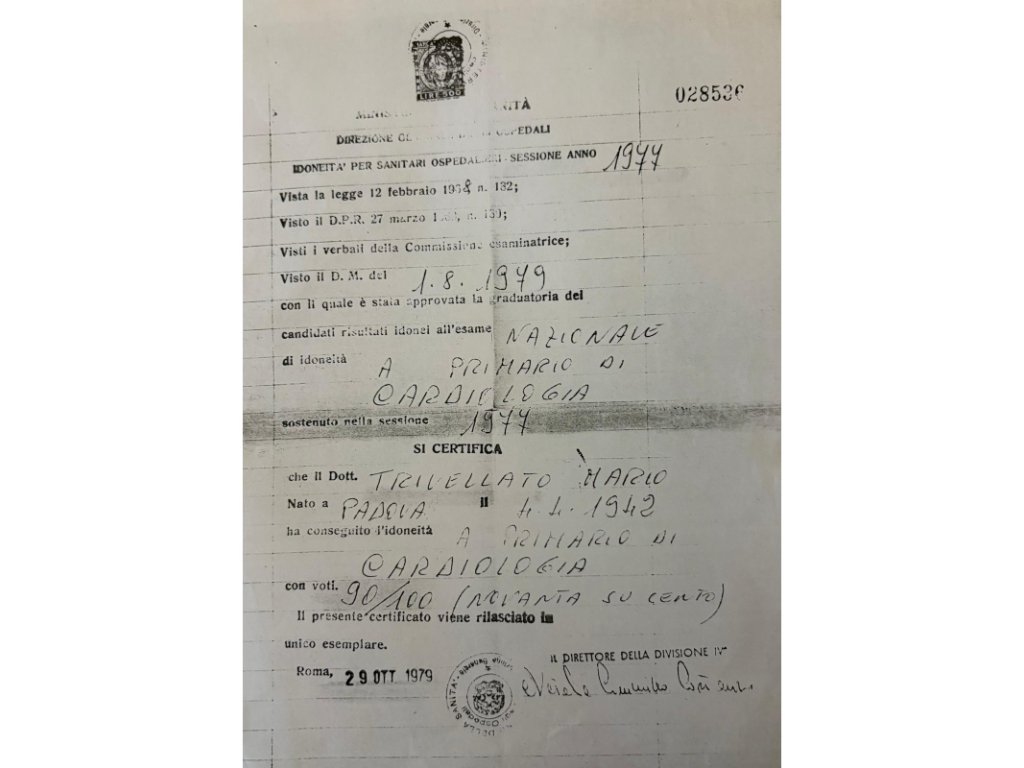 LIRE 500
028536
SANITÀ
DIREZIONE OSPEDALI
IDONEITA' PER SANITARI OSPEDALIERI - SESSIONE ANNO 1977
Vista la legge 12 febbraio 1968 n. 132;
Visto il D.P.R. 27 marzo n. 130;
Visti i verbali della Commissione esaminatrice;
Visto il D. M. del 1.8.1979
con il quale è stata approvata la graduatoria dei
candidati risultati idonei all'esame NAZIONALE
di idoneità A PRIMARIO DI
CARDIOLOGIA
sostenuto nella sessione 1977
SI CERTIFICA
che il Dott. TRIVELLATO MARIO
Nato a PADOVA il 4.4.1942
ha conseguito l'idoneità A PRIMARIO DI
CARDIOLOGIA
con voti. 90/100 (NOVANTA SU CENTO)
Il presente certificato viene rilasciato in
unico esemplare.
IL DIRETTORE DELLA DIVISIONE IV
Roma, 29 OTT 1979
DELLA SANITA'